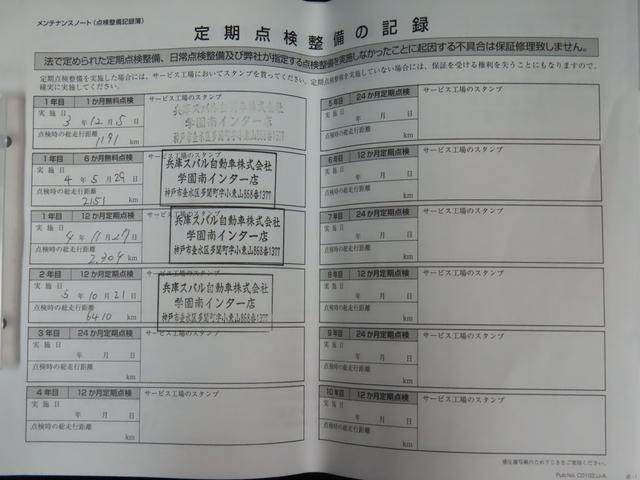 メンテナンスノート（点検整備記録簿）
定期点検整備の記録
法で定められた定期点検整備、日常点検整備及び弊社が指定する点検整備を実施しなかったことに起因する不具合は保証修理致しません。
定期点検整備を実施した場合には、サービス工場においてスタンプを貰ってください。定期点検整備を実施していない場合には、保証を受ける権利を失うことにもなりますので、
確実に実施してください。
1年目 1か月無料点検 サービス工場のスタンプ
実施日 3年12月5日
点検時の総走行距離
1191 km
兵庫スバル自動車株式会社
学園南インター店
神戸市垂水区多聞町字小束山868番1377
1年目 6か月無料点検 サービス工場のスタンプ
実施日 4年5月29日
点検時の総走行距離
2151 km
兵庫スバル自動車株式会社
学園南インター店
神戸市垂水区多聞町字小束山868番1377
1年目 12か月定期点検 サービス工場のスタンプ
実施日 4年11月27日
点検時の総走行距離
2,304 km
兵庫スバル自動車株式会社
学園南インター店
神戸市垂水区多聞町字小束山868番1377
2年目 12か月定期点検 サービス工場のスタンプ
実施日 5年10月21日
点検時の総走行距離
6410 km
兵庫スバル自動車株式会社
学園南インター店
神戸市垂水区多聞町字小束山868番1377
3年目 24か月定期点検 サービス工場のスタンプ
実施日 年 月 日
点検時の総走行距離
km
4年目 12か月定期点検 サービス工場のスタンプ
実施日 年 月 日
点検時の総走行距離
km
5年目 24か月定期点検 サービス工場のスタンプ
実施日 年 月 日
点検時の総走行距離
km
6年目 12か月定期点検 サービス工場のスタンプ
実施日 年 月 日
点検時の総走行距離
km
7年目 24か月定期点検 サービス工場のスタンプ
実施日 年 月 日
点検時の総走行距離
km
8年目 12か月定期点検 サービス工場のスタンプ
実施日 年 月 日
点検時の総走行距離
km
9年目 24か月定期点検 サービス工場のスタンプ
実施日 年 月 日
点検時の総走行距離
km
10年目 12か月定期点検 サービス工場のスタンプ
実施日 年 月 日
点検時の総走行距離
km